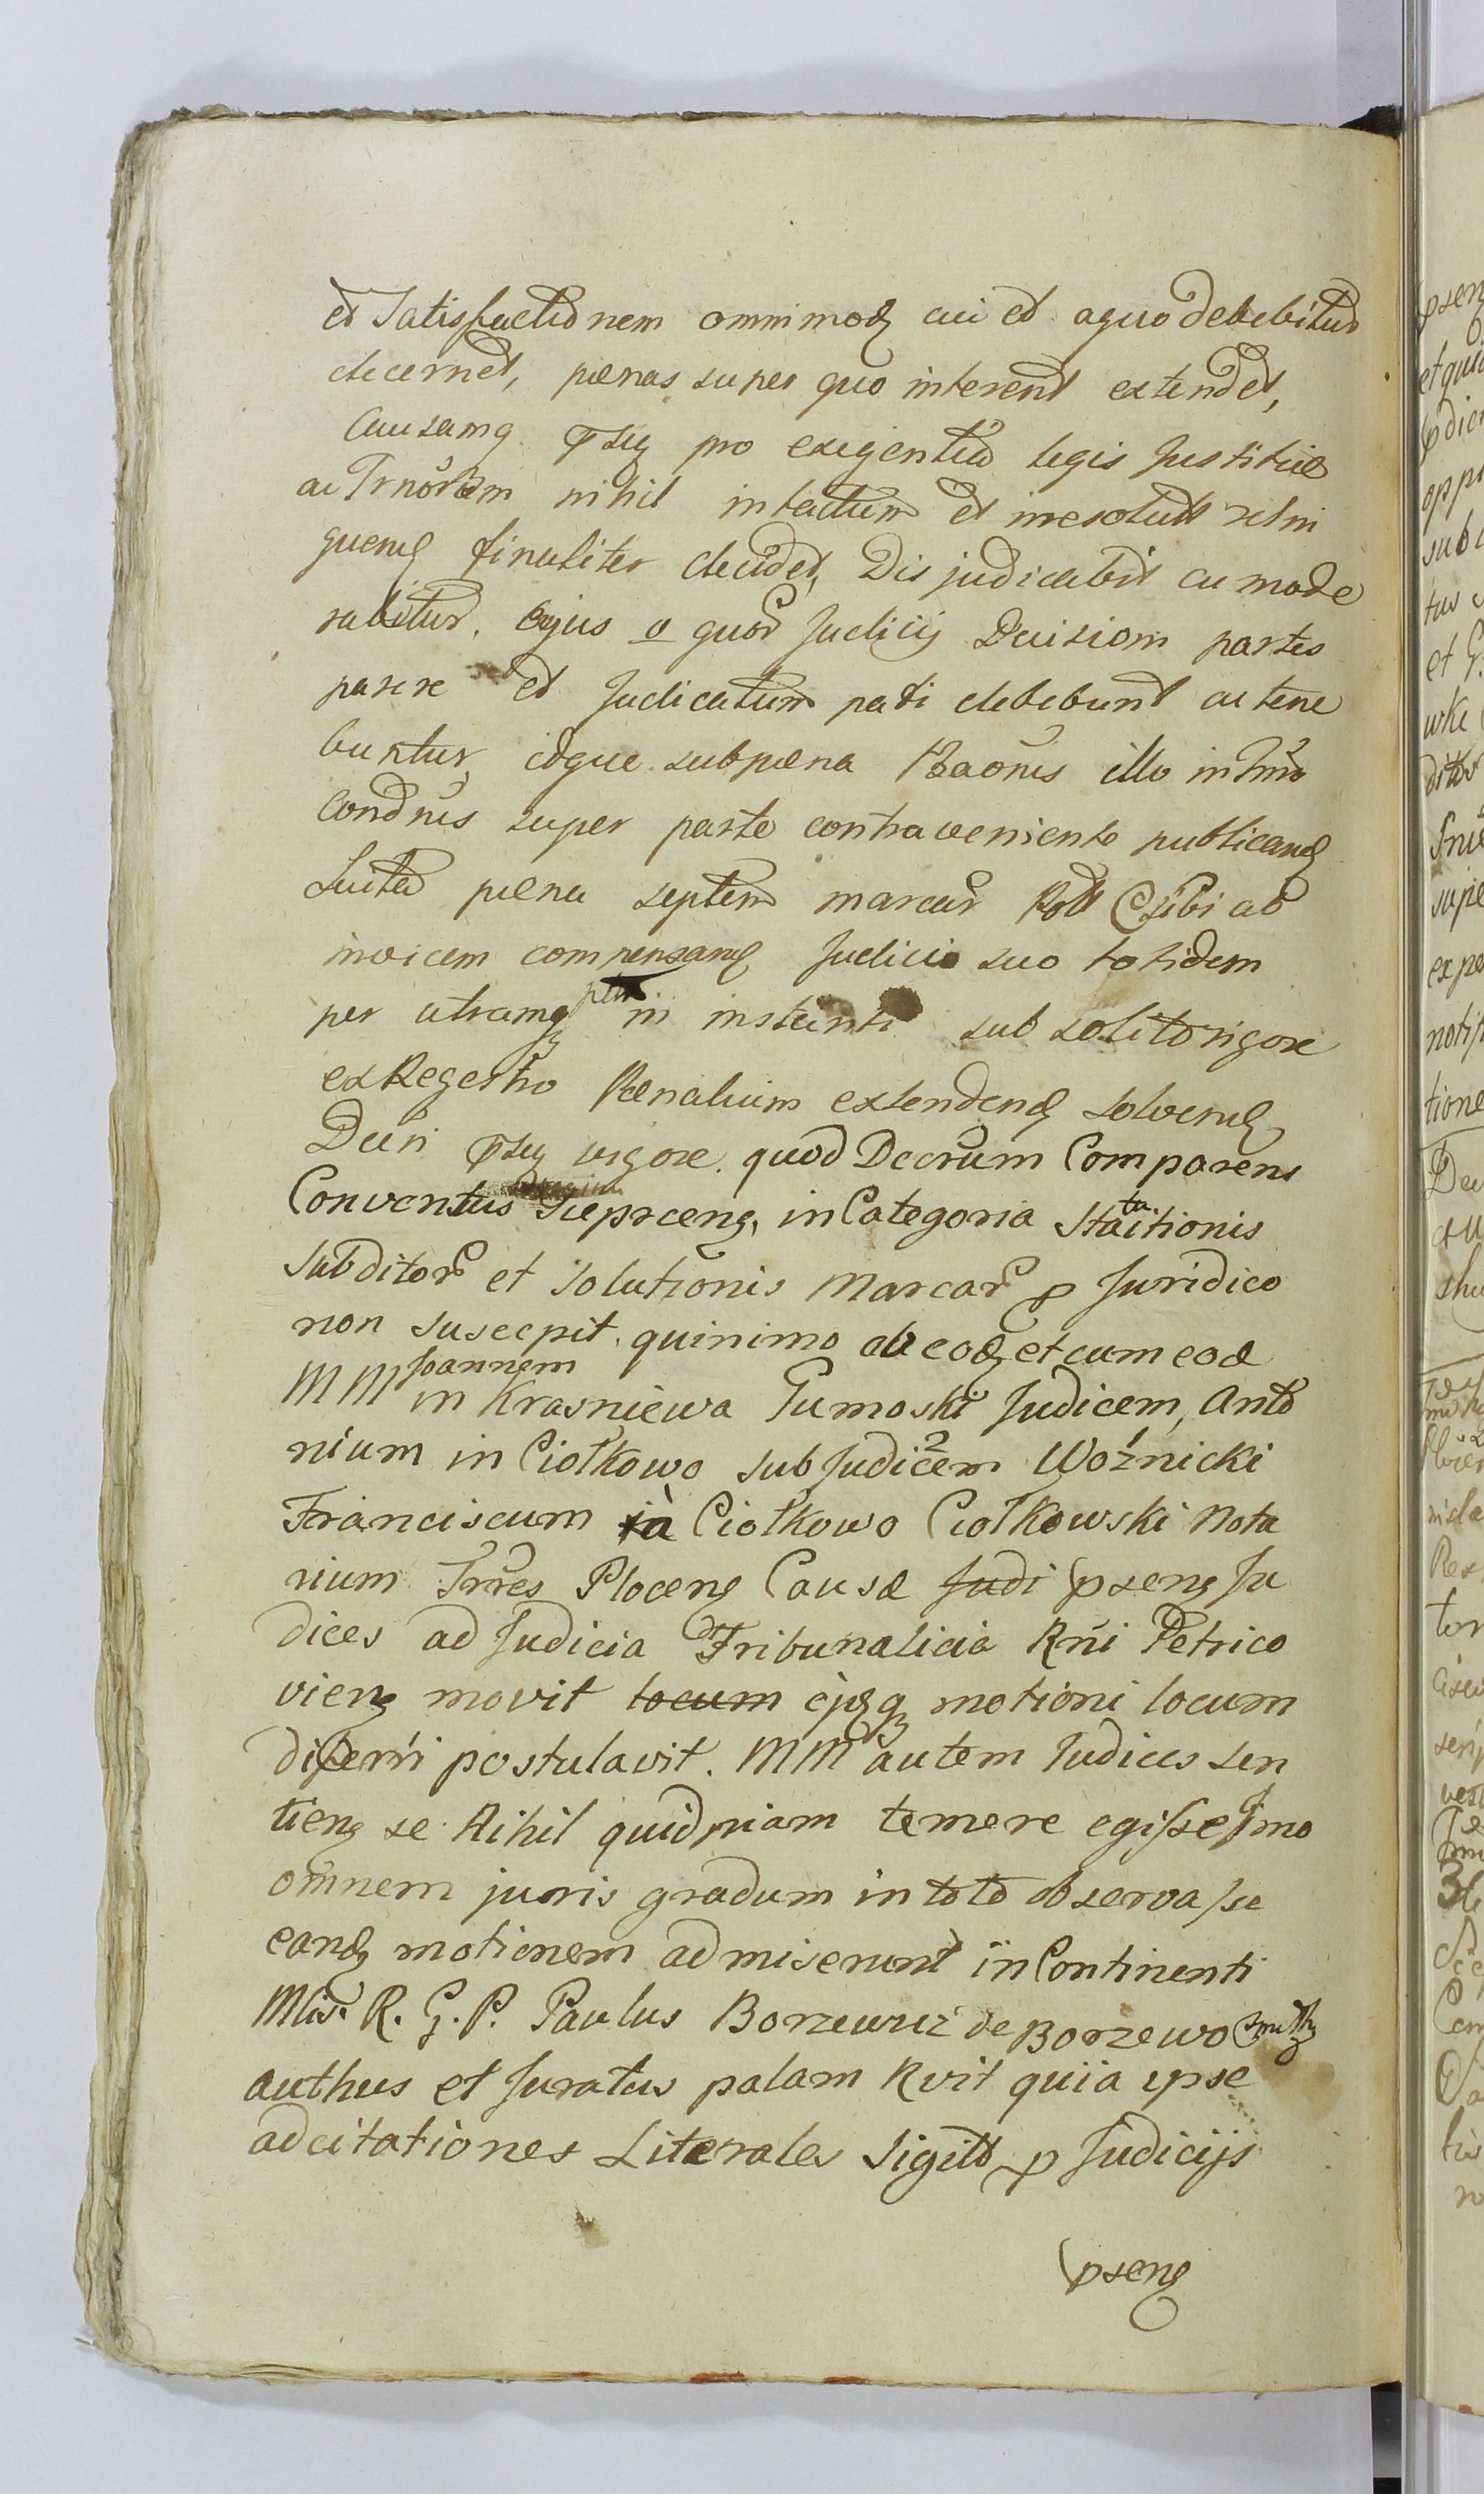 et Satisfactionem omnimodꝫ cui et aquo debebitur
decernet, pænas super quo intererit extendet,
Causamq pñtẽ pro exigentia legis Justitiæ
ac Trnorem nihil intactum et irresolutt relin
quendꝫ finaliter decidet, Dis judicabit ac mode
rabitur. Cujus quod Judicij Decisioni partes
parere et Judicatum pati debebunt ac tene
buntur, idque sub pæna Baõnis illo in
Condñis super parte contraveniente publicandꝫ
Luita pæna septem marcar Poll sibi ad
invicem compensandꝫ Judicio suo totidem
per utramqꝫ ptem in instanti sub solito rigore
ex Regestro Pænalium extendendꝫ solvendꝫ
Decri vigore. quod Decrum Comparens
Conventus Sieprceng. in Categoria Statuitionis
Subditor et solutionis Marcar p Juridico
non suscepit. quinimo ab eodꝫ et cum eod
MM Joannem in Krasniewa Gumoski Judicem, Anto
nium in Ciołkowo sub Judicem 2 Woźnicki 1
Franciscum in Ciołkowo Ciołkowski Nota
rium Trres Ploceng Causæ Judi pseng Ju
dices ad Judicia Tribunalicia Rñi Petrico
vieng movit locum ejꝫqꝫ motioni locum
diferri postulavit. MM autem Judices sen
tieng se Nihil quidpiam temere egisse imo
omnem juris gradum in toto observasse
eandꝫ motionem admiserunt in Continenti
Mlis. R. G. P. Paulus Borzewicz de Borzewo
authus et Juratus palam Rvit quia ipse
ad citationes Literales Sigill p Judicijs
pseng